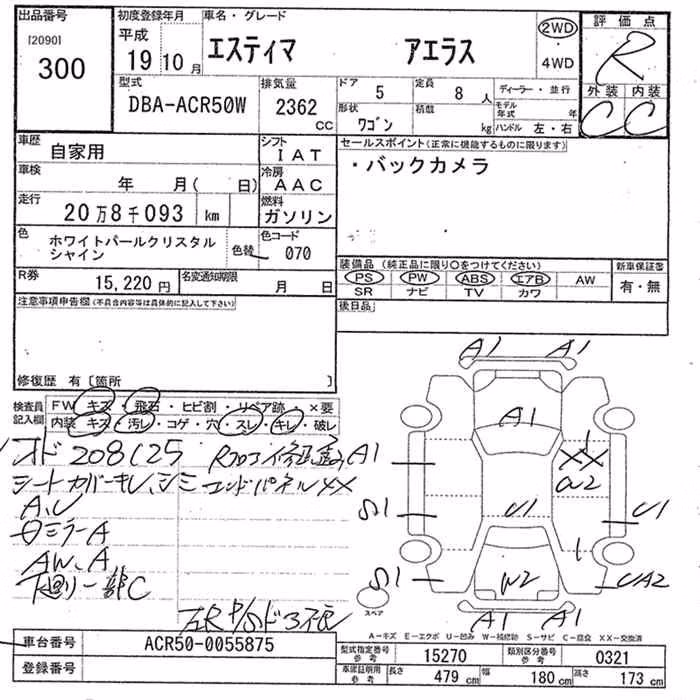 出品番号
[2090]
300
初度登録年月
平成
19年10月
車名・グレード
エスティマ アエラス
2WD
4WD
評価点
R
外装 内装
C C
型式
DBA-ACR50W
排気量
2362 CC
ドア 5
定員 8 人
形状 ワゴン
積載 kg
ディーラー・並行
モデル年式 年
ハンドル 左・右
車歴 自家用
シフト IAT
車検 年 月( 日)
冷房 AAC
走行 20万8千093 km
燃料 ガソリン
色 ホワイトパールクリスタルシャイン
色替
色コード 070
R券 15,220円
名変通知期限 月 日
セールスポイント(正常に機能するものに限ります)
・バックカメラ
装備品(純正品に限り○をつけてください)
PS PW ABS エアB AW
SR ナビ TV カワ
新車保証書
有・無
後日品
注意事項申告欄(不具合内容等は具体的に記入して下さい)
修復歴 有 [箇所 ]
検査員記入欄
FW キズ・飛石・ヒビ割・リペア跡・×要
内装 キズ・汚レ・コゲ・穴・スレ・キレ・破レ
オド 208125
シートカバーキレ、シミ エンドパネルXX
A、U
ミラーA
AW、A
下廻り一部C
A1 A1
A1
A1
XX
U1
U1
W2
UA2
A1 A1
スペア
A-キズ E-エクボ U-凹み W-補修跡 S-サビ C-腐食 XX-交換済
車台番号 ACR50-0055875
登録番号
型式指定番号参考 15270
類別区分番号参考 0321
車庫証明用参考 長さ 479 cm 幅 180 cm 高さ 173 cm